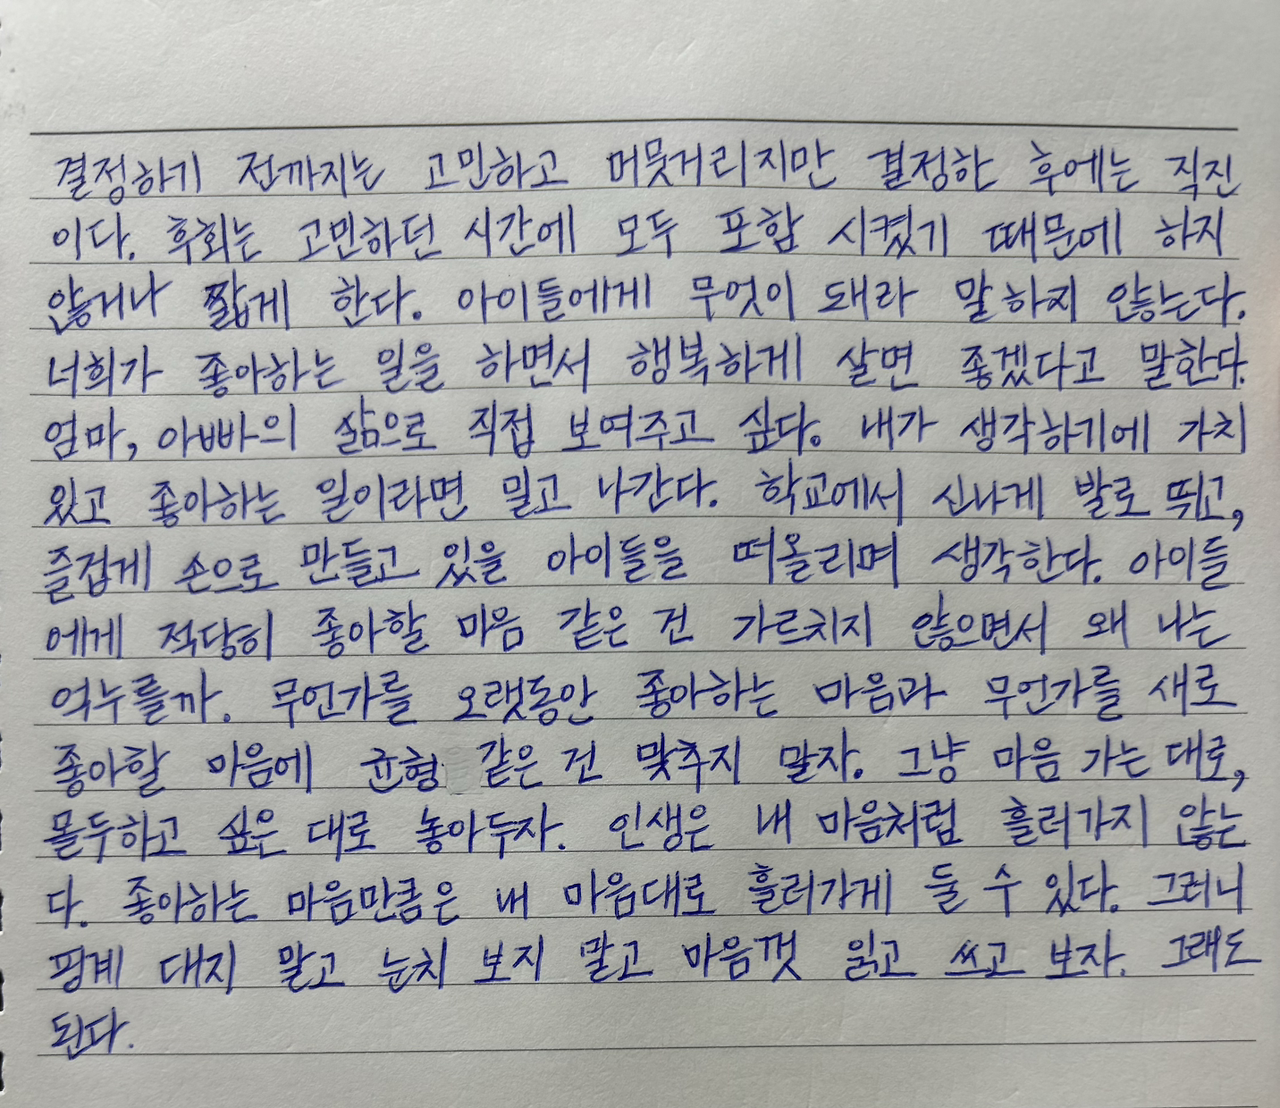 결정하기 전까지는 고민하고 머뭇거리지만 결정한 후에는 직진
이다. 후회는 고민하던 시간에 모두 포함 시켰기 때문에 하지
않거나 짧게 한다. 아이들에게 무엇이 돼라 말하지 않는다.
너희가 좋아하는 일을 하면서 행복하게 살면 좋겠다고 말한다.
엄마, 아빠의 삶으로 직접 보여주고 싶다. 내가 생각하기에 가치
있고 좋아하는 일이라면 밀고 나간다. 학교에서 신나게 발로 뛰고,
즐겁게 손으로 만들고 있을 아이들을 떠올리며 생각한다. 아이들
에게 적당히 좋아할 마음 같은 건 가르치지 않으면서 왜 나는
억누를까. 무언가를 오랫동안 좋아하는 마음과 무언가를 새로
좋아할 마음에 균형 같은 건 맞추지 말자. 그냥 마음 가는 대로,
몰두하고 싶은 대로 놓아두자. 인생은 내 마음처럼 흘러가지 않는
다. 좋아하는 마음만큼은 내 마음대로 흘러가게 둘 수 있다. 그러니
핑계 대지 말고 눈치 보지 말고 마음껏 읽고 쓰고 보자. 그래도
된다.